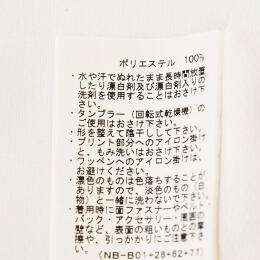 ポリエステル 100%
・水や汗でぬれたまま長時間放置
したり漂白剤及び漂白剤入りの
洗剤を使用することはおさけ下
さい。
・タンブラー（回転式乾燥機）の
ご使用はおさけ下さい。
・形を整えて陰干しして下さい。
・プリント部分へのアイロン掛け
と、もみ洗いはおさけ下さい。
・ワッペンへのアイロン掛けは、
お避けください。
・濃色のものは色落ちすることが
ありますので、淡色のもの（白
物）と一緒に洗わないで下さい。
・着用時に面ファスナーやベルト・
バック・アクセサリー・周囲の
壁など、表面の粗いものとの摩
擦や、引っかかりにご注意下さ
い。
(NB-B01+26+62+77)